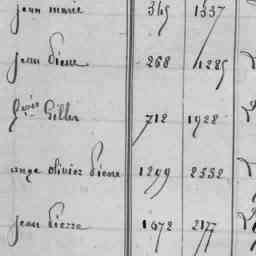 jean marie 345 1337
jean Pierre 268 1285
Gilles 712 1928
ange olivier Pierre 1299 2552
jean Pierre 1072 2177